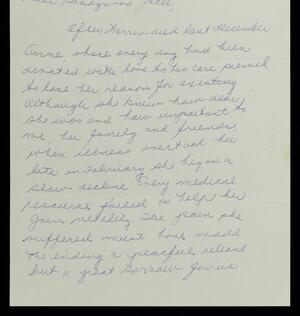 Dear Gladys and Jack,
After Warren died last December
Anne, whose every day had been
donated with love to his care seemed
to lose her reason for existing.
Although she knew how dear
she was and how important to
me, her family and friends,
when illness overtook her
late in February she began a
slow decline. Every medical
resource failed to help her
gain vitality. The pain she
suffered must have made
the ending a peaceful release
but a great sorrow for us